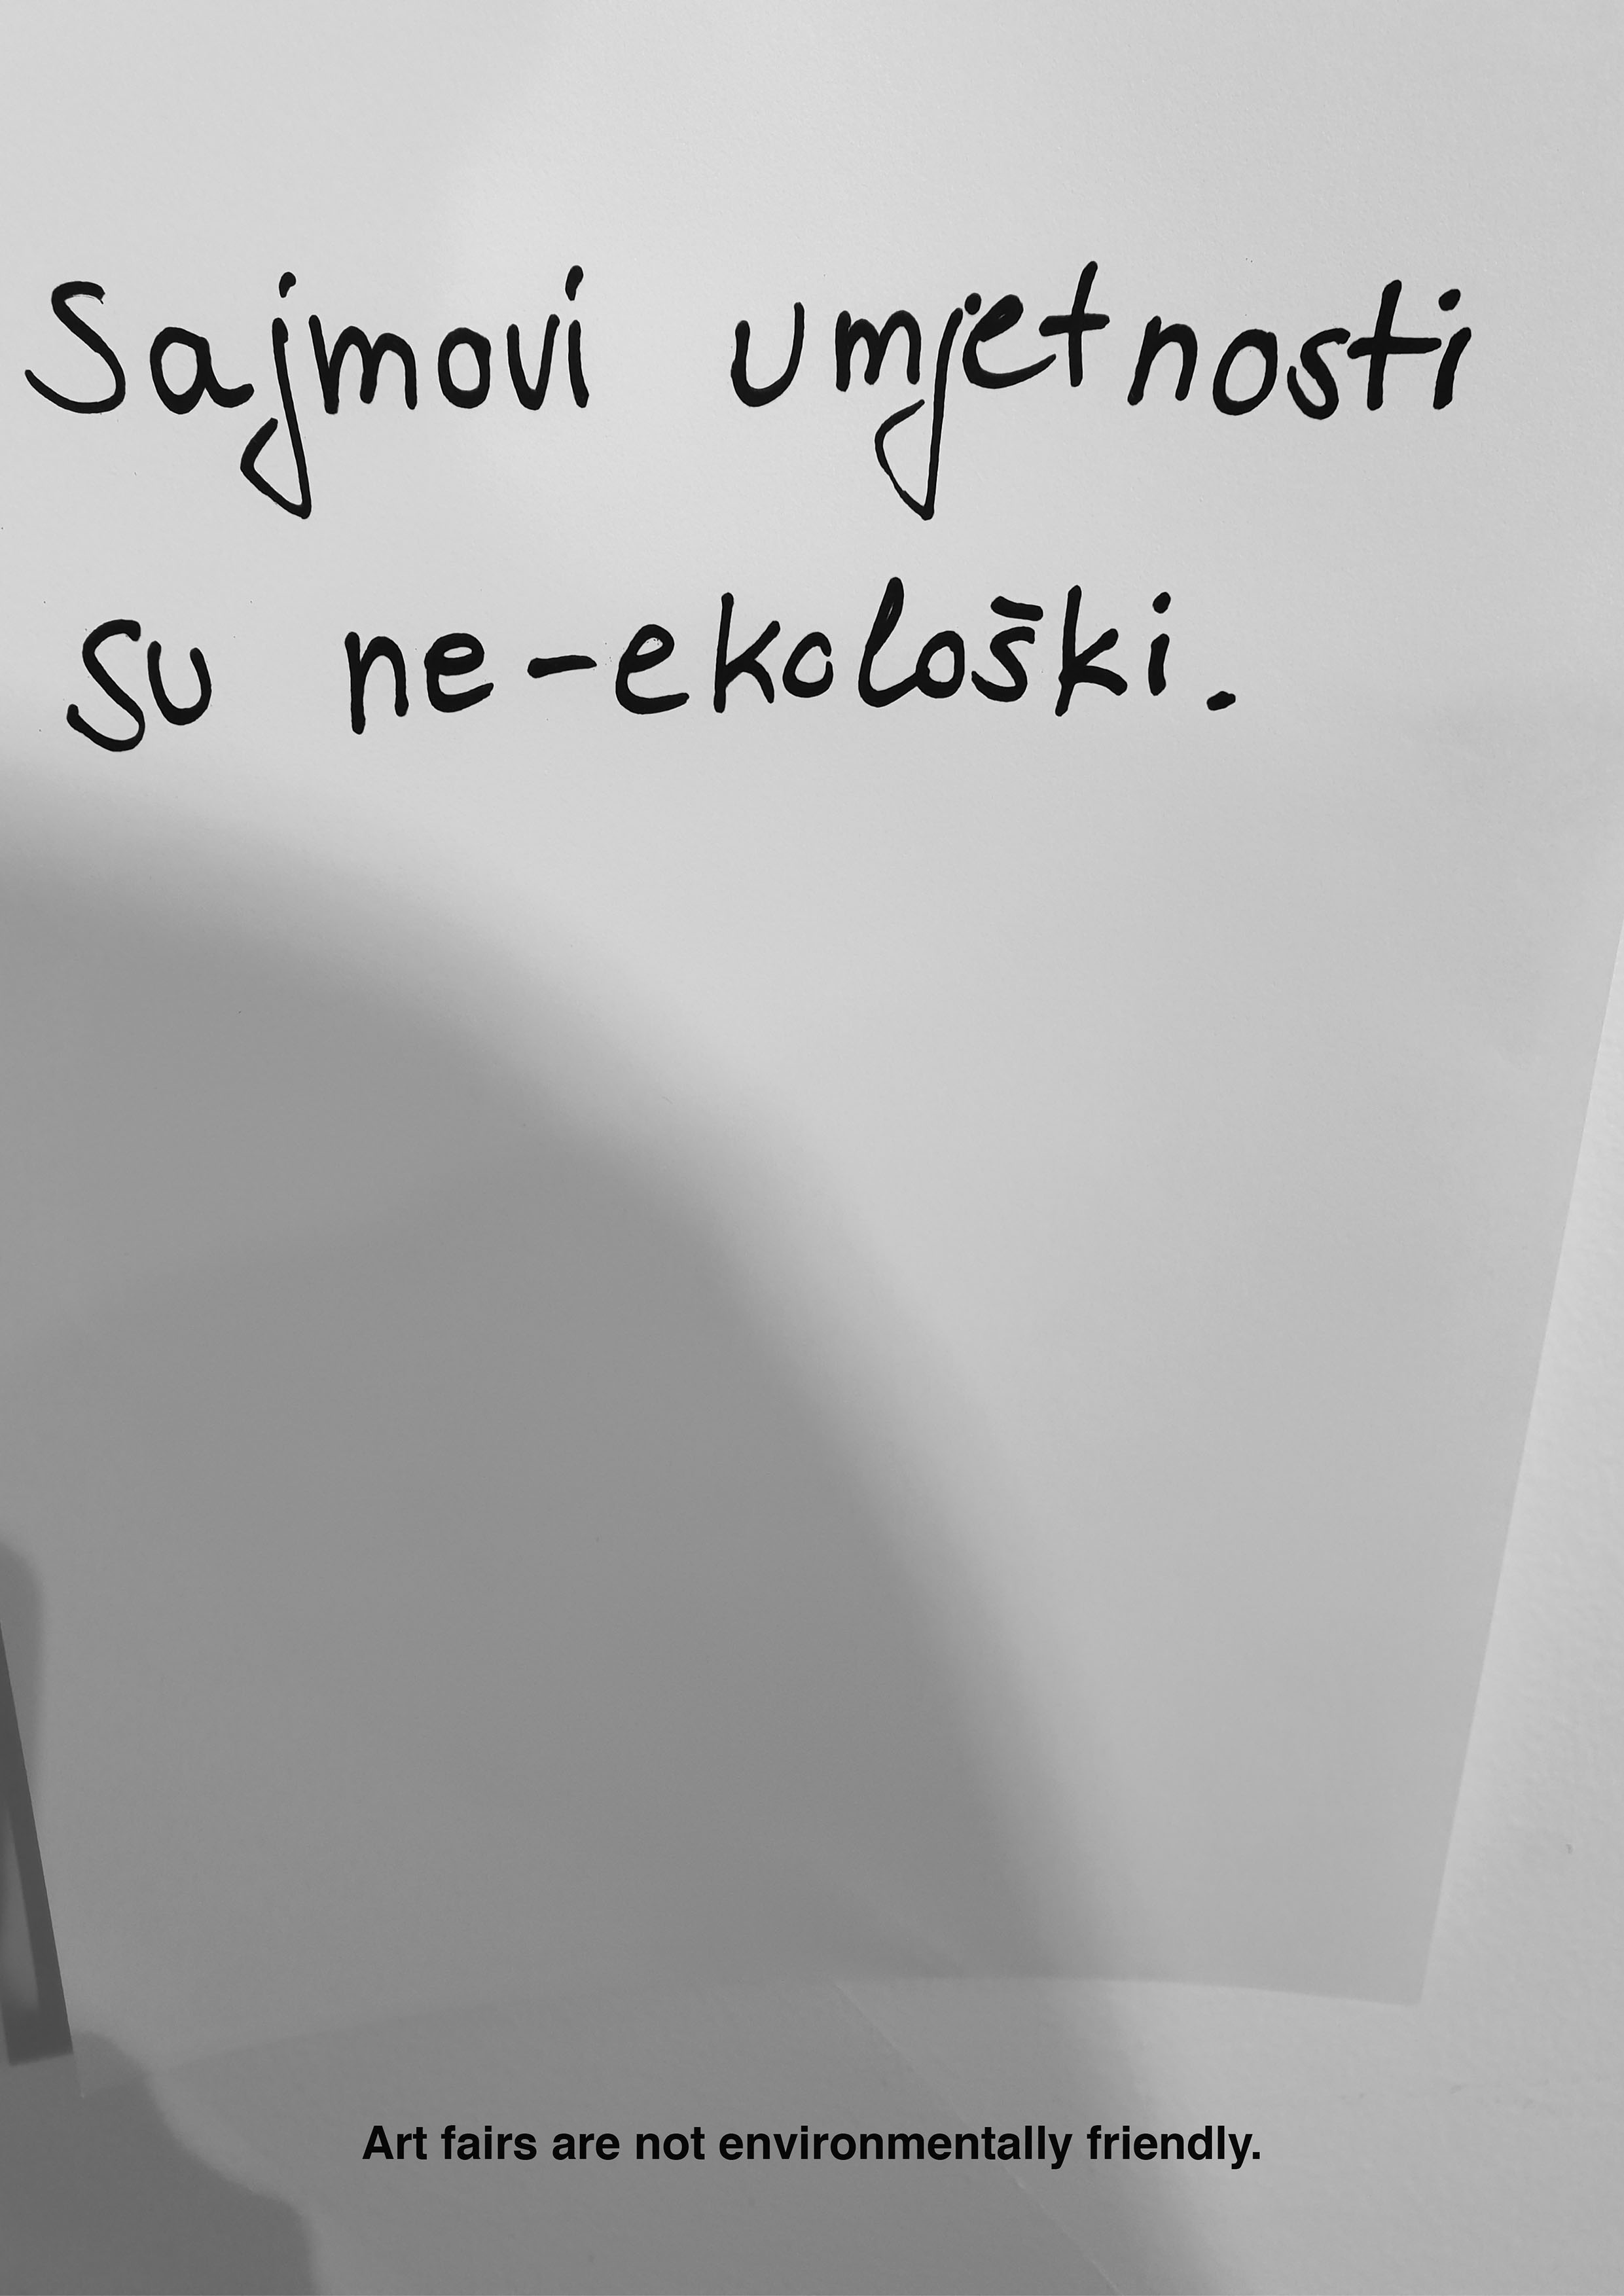 Sajmovi umjetnosti
su ne-ekološki.
Art fairs are not environmentally friendly.